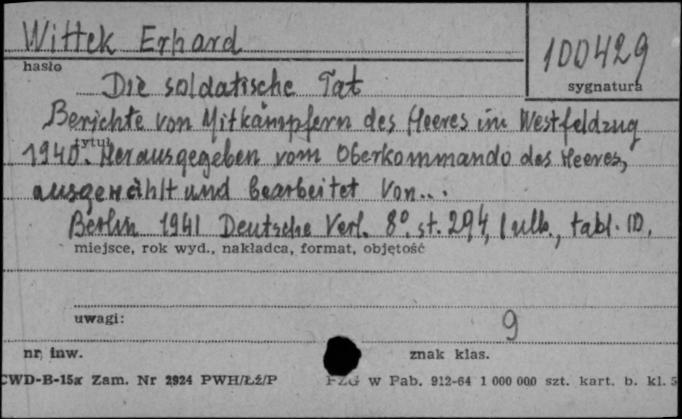 Wittek Erhard
100429
hasło
sygnatura
Die soldatische Tat
Berichte von Mitkämpfern des Heeres im Westfeldzug
tytuł
1940. Herausgegeben vom Oberkommando des Heeres,
ausgewählt und bearbeitet von...
Berlin 1941 Deutsche Verl. 8° st. 294, 1 ulb., tabl. 10.
miejsce, rok wyd., nakładca, format, objętość
uwagi:
9
nr. inw.
znak klas.
CWD-B-15x Zam. Nr 2924 PWH/Łź/P
PZG w Pab. 912-64 1 000 000 szt. kart. b. kl. 5